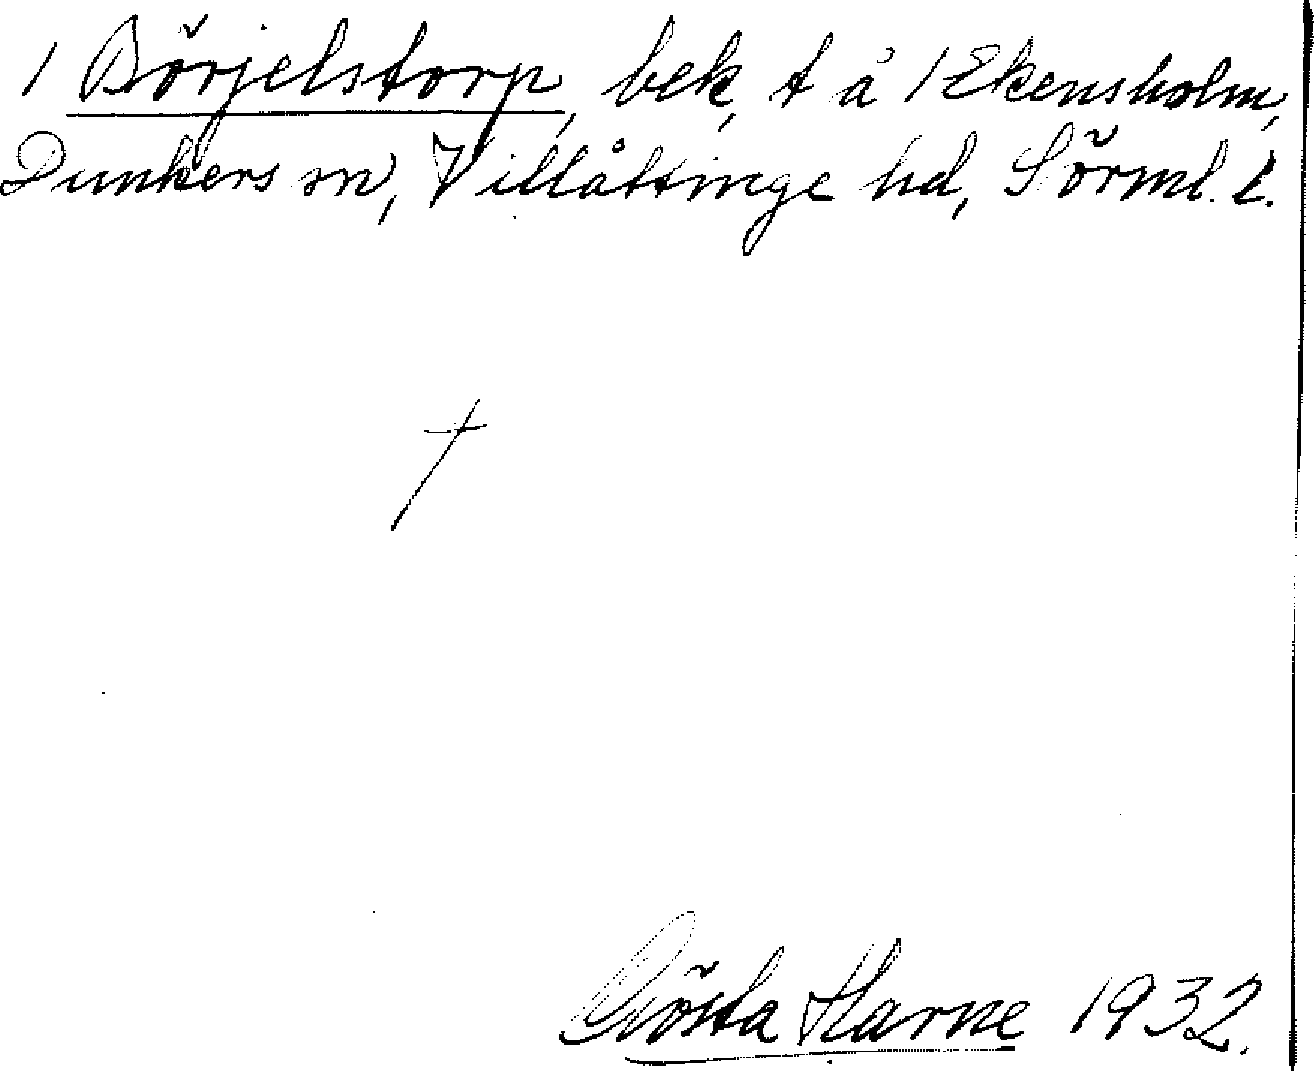 1 Börjelstorp, bek, t å 1 Ekensholm,
Dunkers sn, Villåttinge hd, Sörml. l.
†
Gösta Harne 1932.